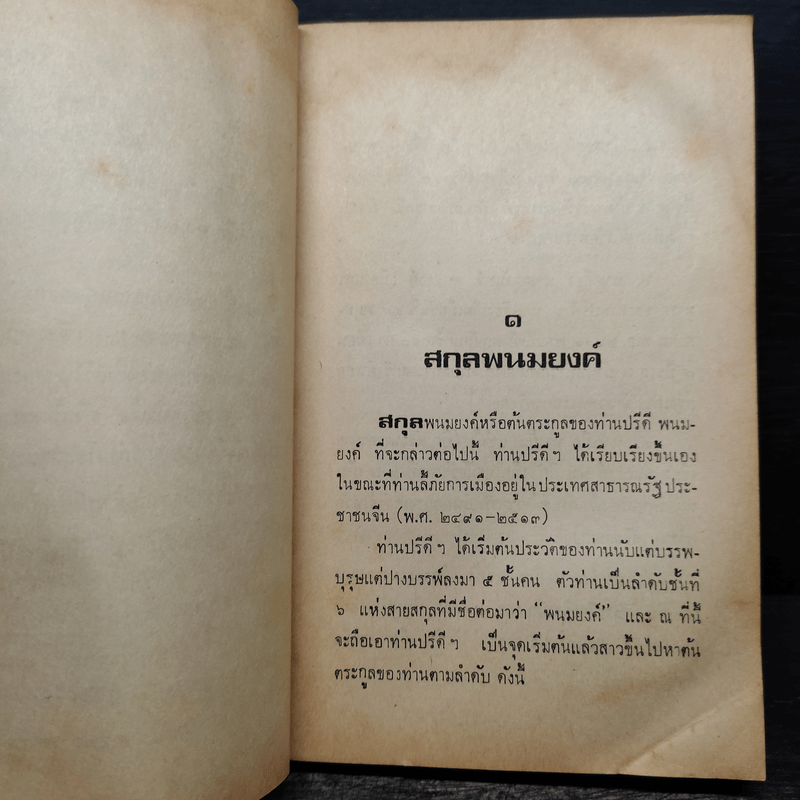 ๑
สกุลพนมยงค์
สกุลพนมยงค์หรือต้นตระกูลของท่านปรีดี พนม-
ยงค์ ที่จะกล่าวต่อไปนี้ ท่านปรีดีฯ ได้เรียบเรียงขึ้นเอง
ในขณะที่ท่านลี้ภัยการเมืองอยู่ในประเทศสาธารณรัฐประ-
ชาชนจีน (พ.ศ. ๒๔๙๑-๒๕๑๓)
ท่านปรีดีฯ ได้เริ่มต้นประวัติของท่านนับแต่บรรพ-
บุรุษแต่ปางบรรพ์ลงมา ๕ ชั้นคน ตัวท่านเป็นลำดับชั้นที่
๖ แห่งสายสกุลที่มีชื่อต่อมาว่า “พนมยงค์” และ ณ ที่นี้
จะถือเอาท่านปรีดีฯ เป็นจุดเริ่มต้นแล้วสาวขึ้นไปหาต้น
ตระกูลของท่านตามลำดับ ดังนี้